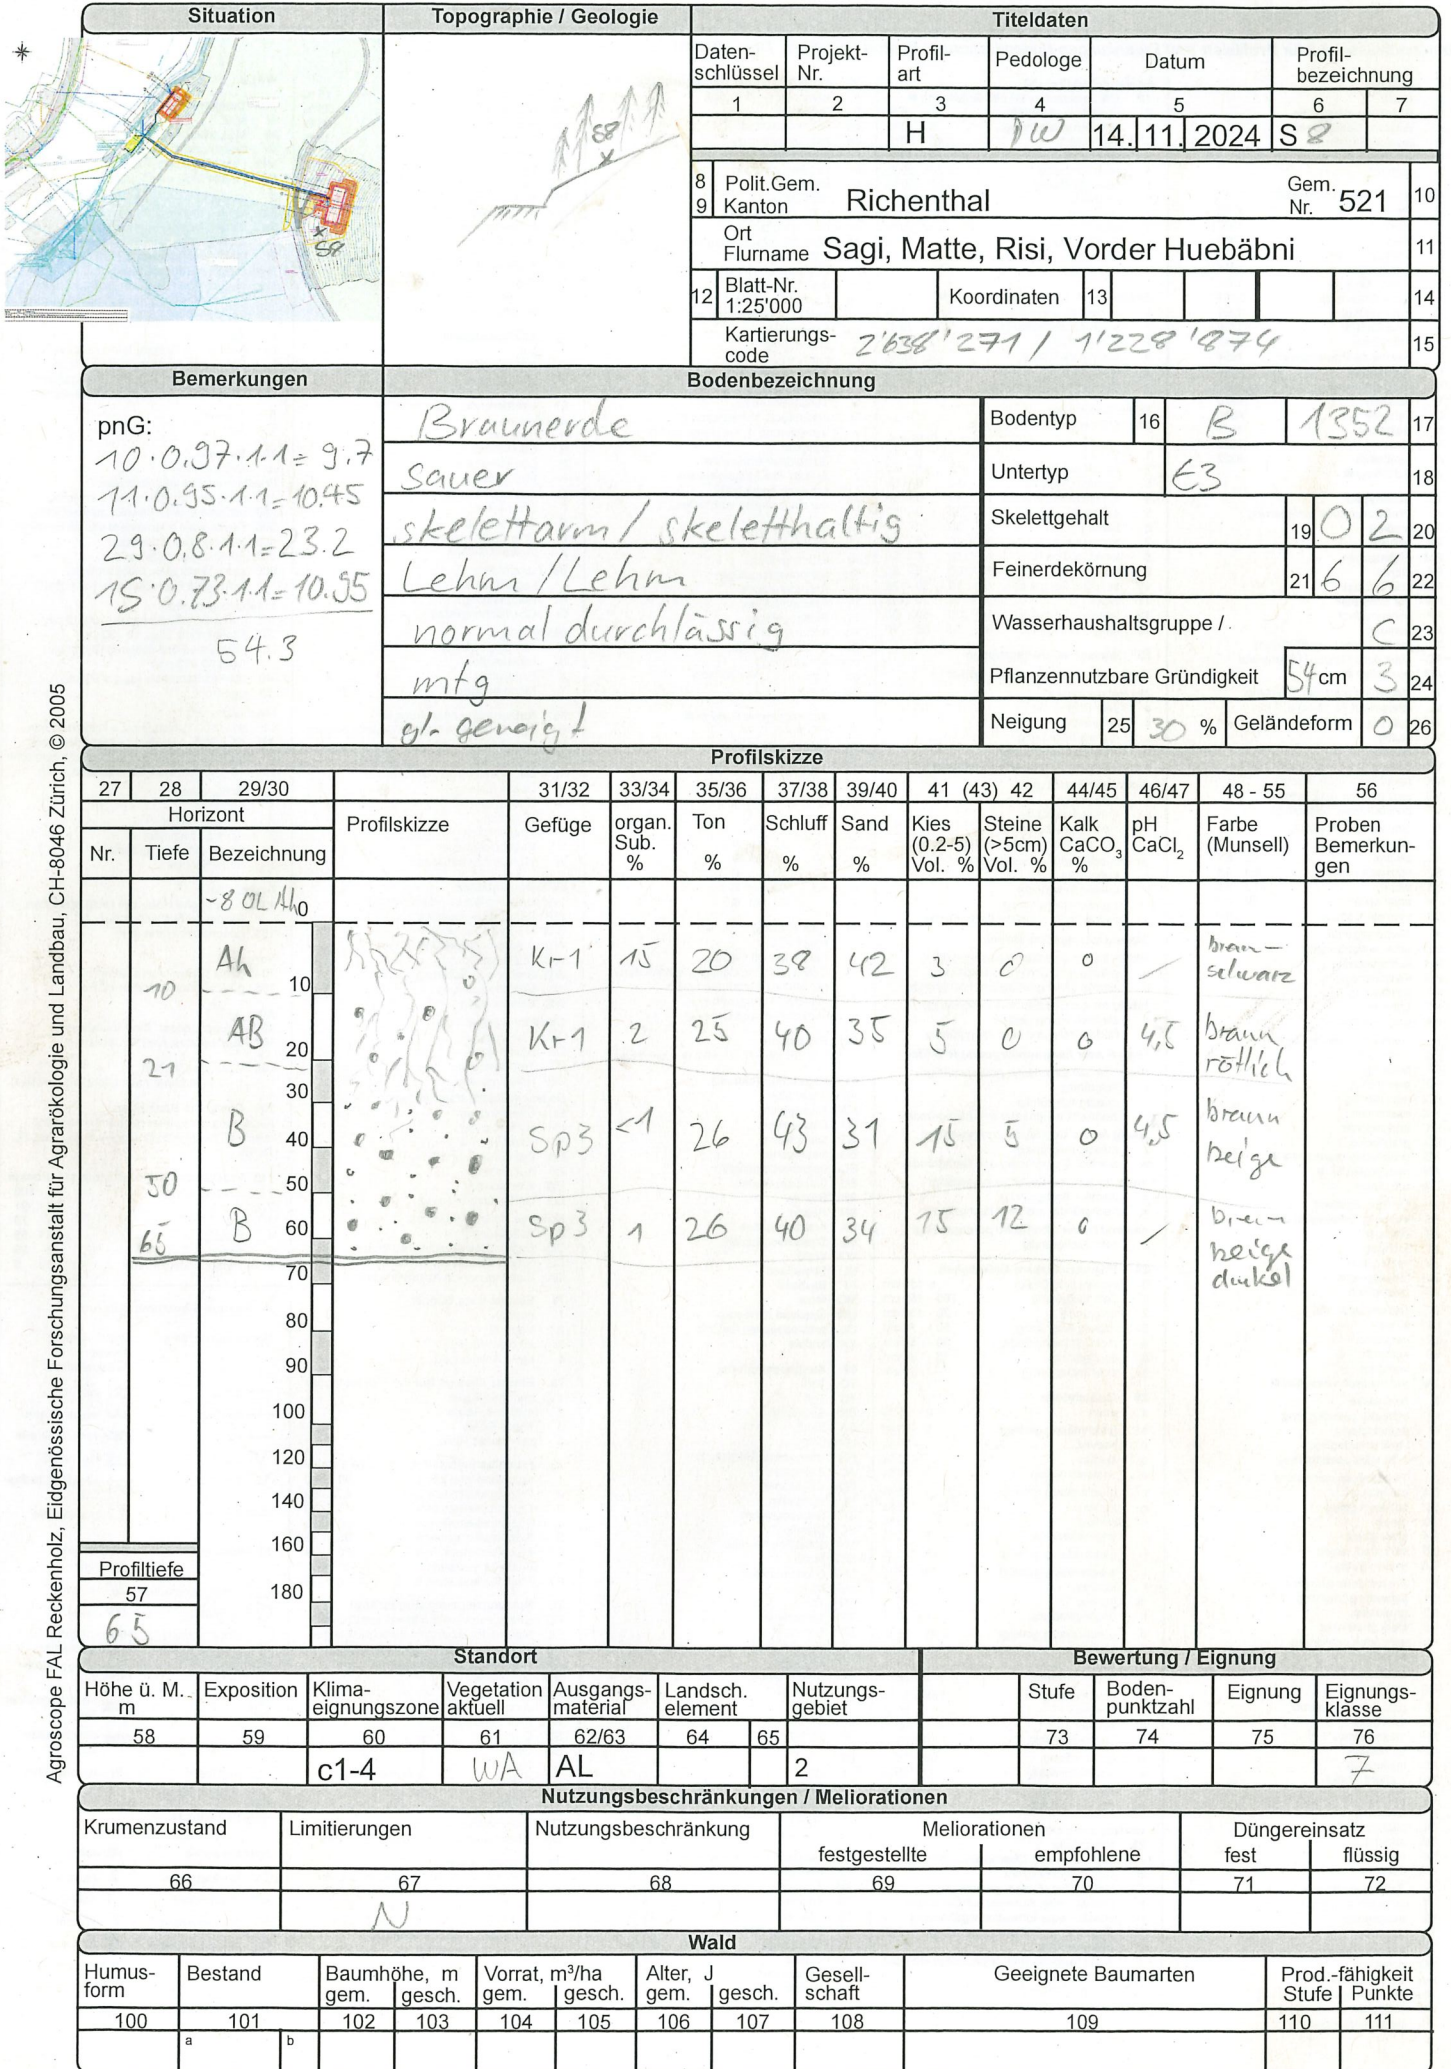 Situation
Topographie / Geologie
S8
S8
Titeldaten
Daten-
schlüssel
Projekt-
Nr.
Profil-
art
Pedologe
Datum
Profil-
bezeichnung
1 2 3 4 5 6 7
H 14. 11. 2024 S 8
8 Polit.Gem.
9 Kanton
Richenthal
Gem.
Nr. 521 10
Ort
Flurname Sagi, Matte, Risi, Vorder Huebäbni 11
12 Blatt-Nr.
1:25'000
Koordinaten 13 14
Kartierungs-
code 2'638'271 / 1'228'874 15
Bemerkungen
pnG:
10·0.97·1·1= 9.7
11·0.95·1·1=10.45
29·0.8·1·1=23.2
15·0.73·1·1=10.95
54.3
Bodenbezeichnung
Braunerde
sauer
skelettarm / skeletthaltig
Lehm / Lehm
normal durchlässig
mtg
gl. geneigt
Bodentyp 16 B 1352 17
Untertyp E3 18
Skelettgehalt 19 0 2 20
Feinerdekörnung 21 6 6 22
Wasserhaushaltsgruppe / c 23
Pflanzennutzbare Gründigkeit 54 cm 3 24
Neigung 25 30 % Geländeform 0 26
Profilskizze
27 28 29/30 31/32 33/34 35/36 37/38 39/40 41 (43) 42 44/45 46/47 48 - 55 56
Horizont
Nr. Tiefe Bezeichnung
Profilskizze
Gefüge
organ.
Sub.
%
Ton
%
Schluff
%
Sand
%
Kies
(0.2-5)
Vol. %
Steine
(>5cm)
Vol. %
Kalk
CaCO3
%
pH
CaCl2
Farbe
(Munsell)
Proben
Bemerkun-
gen
-8 OL Ah 0
Ah Kr1 15 20 38 42 3 0 0 / braun-
schwarz
10 10
AB Kr1 2 25 40 35 5 0 0 4,5 braun
rötlich
21 20
30
B Sp3 <1 26 43 31 15 5 0 4,5 braun
beige
40
50 50
B Sp3 1 26 40 34 15 12 0 / braun
beige
dunkel
65 60
70
80
90
100
120
140
160
180
Profiltiefe
57
65
Standort
Höhe ü. M.
m
Exposition
Klima-
eignungszone
Vegetation
aktuell
Ausgangs-
material
Landsch.
element
Nutzungs-
gebiet
58 59 60 61 62/63 64 65
c1-4 WA AL 2
Bewertung / Eignung
Stufe
Boden-
punktzahl
Eignung
Eignungs-
klasse
73 74 75 76
7
Nutzungsbeschränkungen / Meliorationen
Krumenzustand
Limitierungen
Nutzungsbeschränkung
Meliorationen
festgestellte empfohlene
Düngereinsatz
fest flüssig
66 67 68 69 70 71 72
N
Wald
Humus-
form
Bestand
Baumhöhe, m
gem. gesch.
Vorrat, m³/ha
gem. gesch.
Alter, J
gem. gesch.
Gesell-
schaft
Geeignete Baumarten
Prod.-fähigkeit
Stufe Punkte
100 101 102 103 104 105 106 107 108 109 110 111
a b
Agroscope FAL Reckenholz, Eidgenössische Forschungsanstalt für Agrarökologie und Landbau, CH-8046 Zürich, © 2005